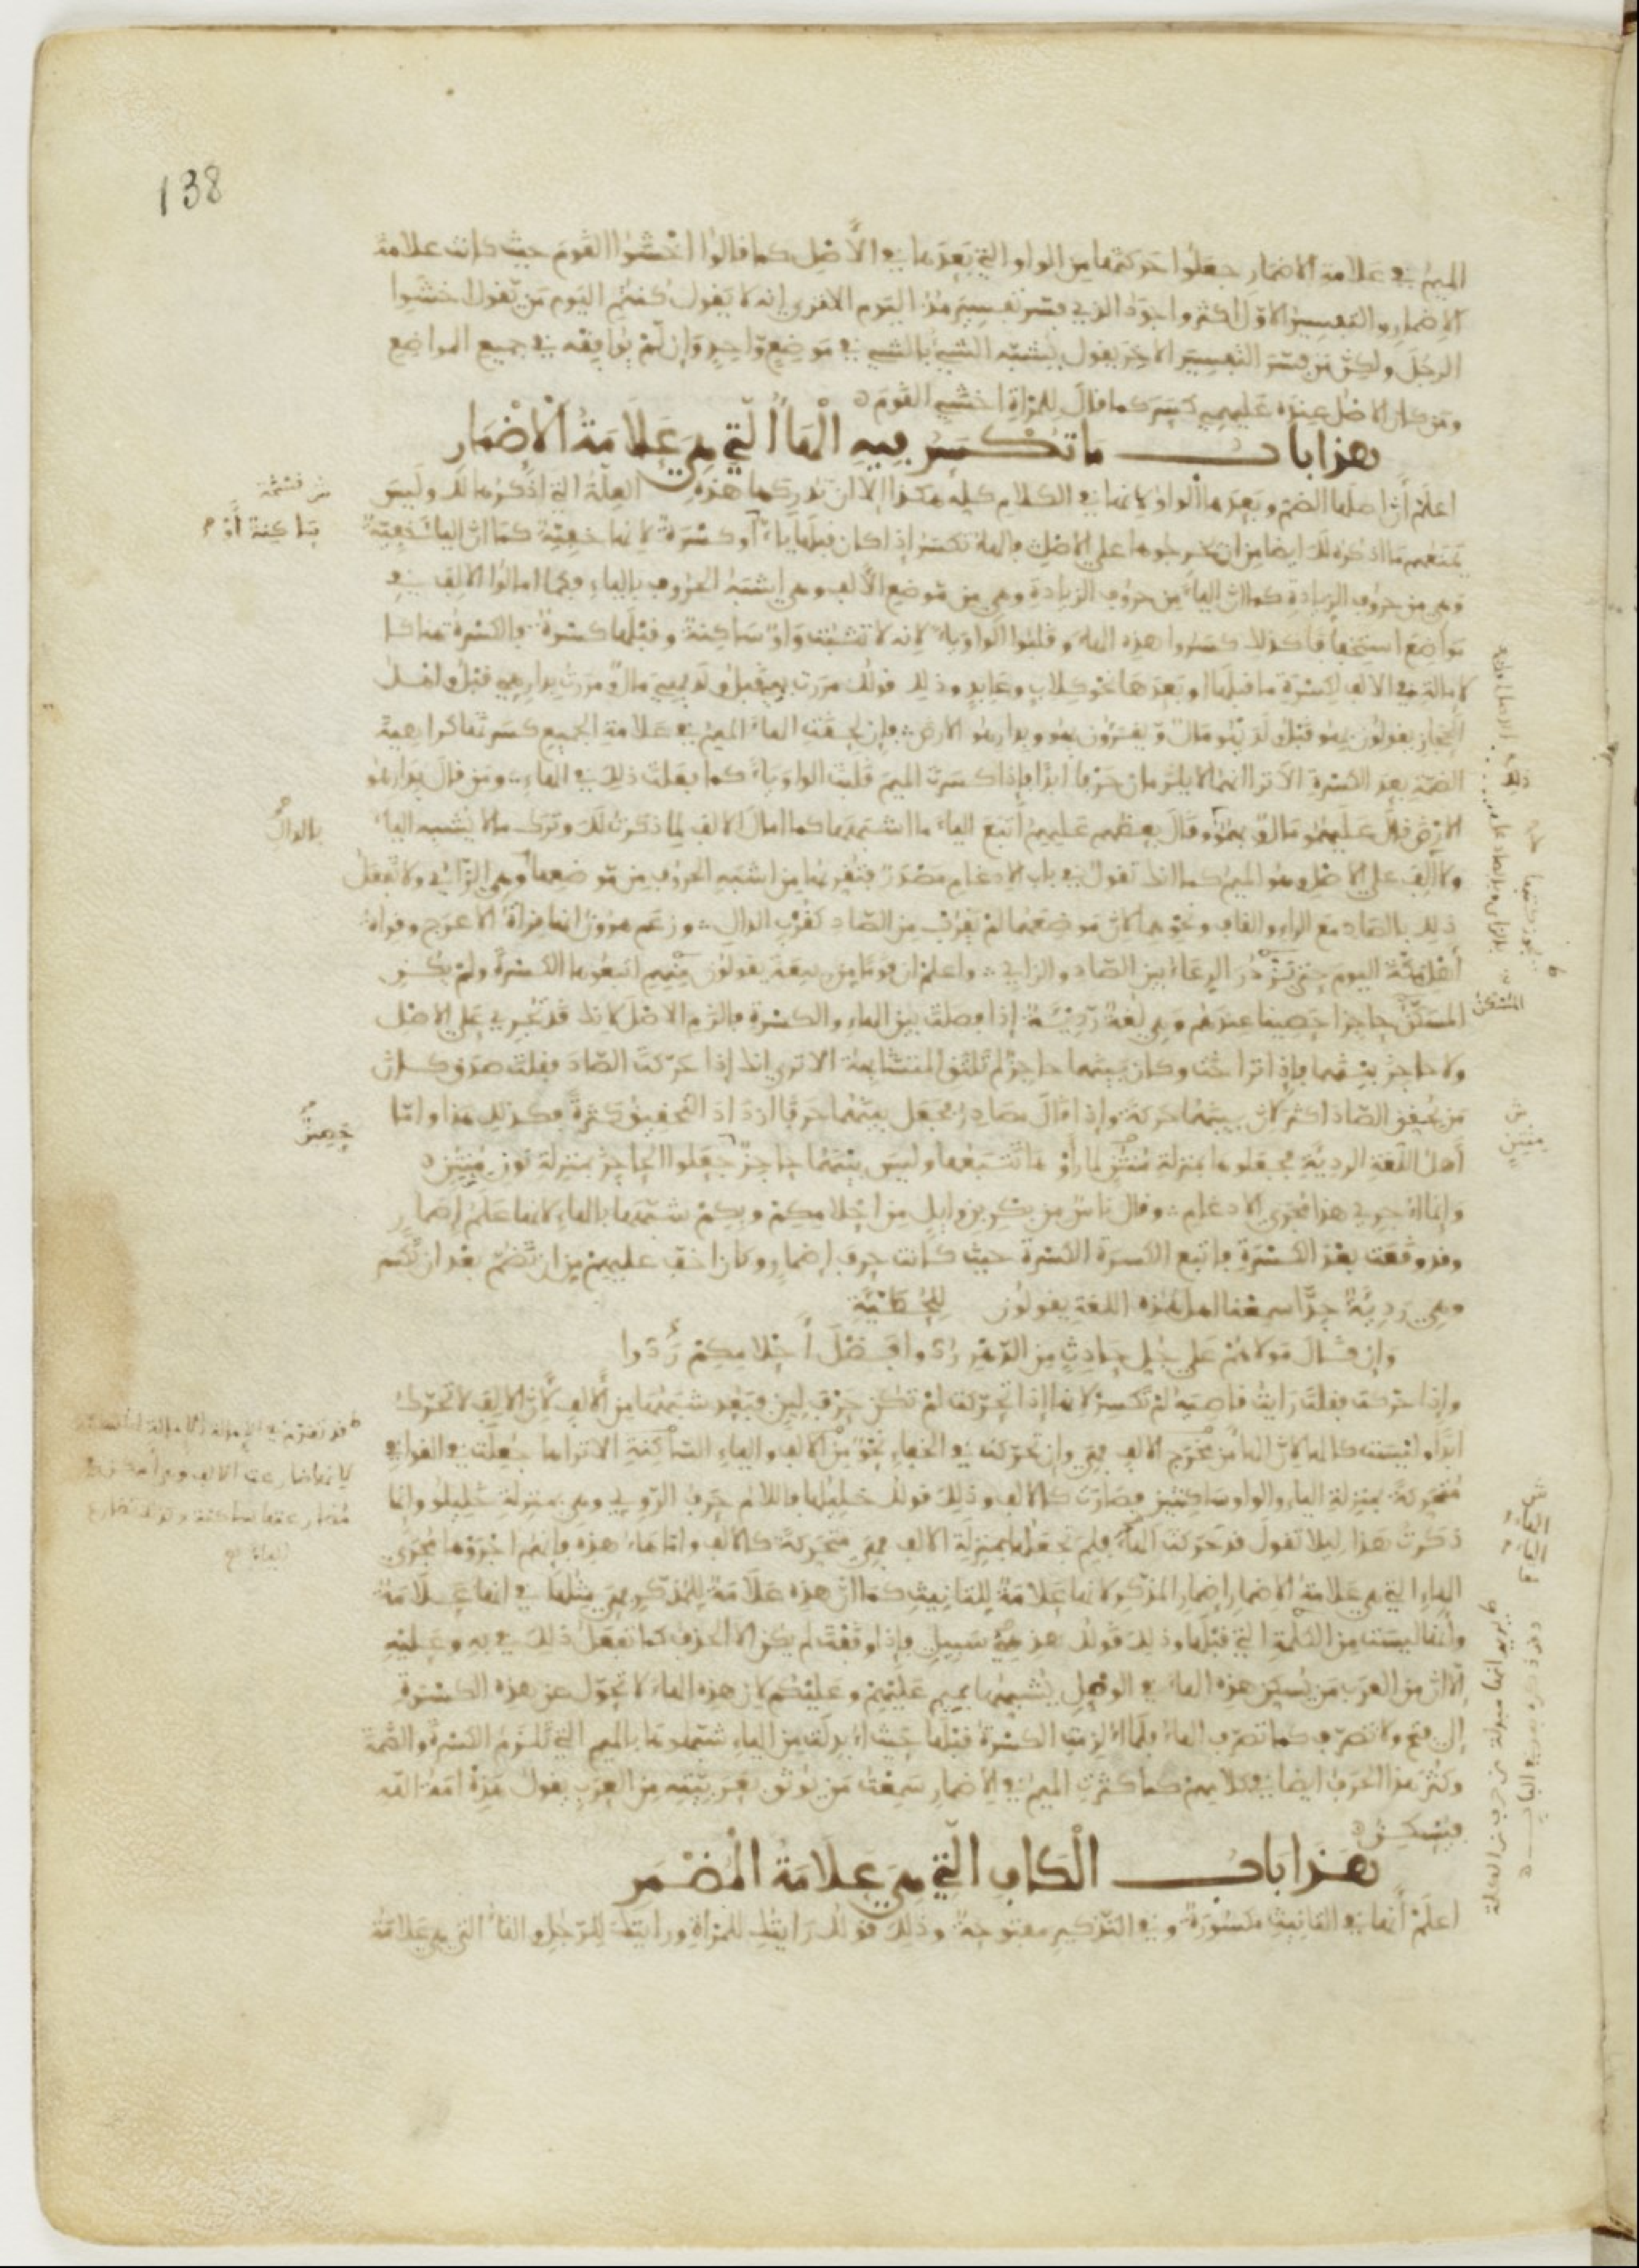 138
الميم في علامة الاضمار جعلوا حركتها من الواو التي بعدها في الأصل كما قالوا اخشوا القوم حيث كانت علامة
الإضمار والتفسير الاول اكثر واجود الذي فسر تفسير مذ اليوم الا ترى انه لا يقول كنتم اليوم من يقول اخشوا
الرجل ولكن من فسر التفسير الاخر يقول يشبه الشيء بالشيء في موضع واحد وإن لم يوافقه في جميع المواضع
ومن كان الاصل عنده عليهمي كسر كما قال للمرأة اخشي القوم
هذا باب ما تكسر فيه الهاء التي هي علامة الاضمار
اعلم أن اصلها الضم وبعدها الواو لانها في الكلام كله هكذا الا ان تدركها هذه العلة التي اذكرها لك وليس
يمنعهم ما اذكر لك ايضا من ان يخرجوها على الاصل فالهاء تكسر إذا كان قبلها ياء أو كسرة لانها خفية كما ان الياء خفية
وهي من حروف الزيادة كما ان الياء من حروف الزيادة وهي من موضع الألف وهي اشبه الحروف بالياء فكما امالوا الالف في
مواضع استخفافا كذلك كسروا هذه الهاء وقلبوا الواو ياء لانه لا تثبت واو ساكنة وقبلها كسرة فالكسرة هاهنا كا
لامالة في الالف لكسرة ما قبلها او بعدها نحو كلاب وعابد وذلك قولك مررت بهي قبل ولديهي مال ومررت بدارهي قبل واهل
الحجاز يقولون بهو قبل ولديهو مال ويقرؤون بهو وبدارهو الارض فإن لحقت الهاء الميم في علامة الجميع كسرتها كراهية
الضمة بعد الكسرة الا ترا انهما لا يلزمان حرفا ابدا فإذا كسرت الميم قلبت الواو ياء كما فعلت ذلك في الهاء ومن قال بدارهو
الارض قال عليهمو مال وبهمو وقال بعضهم عليهمو اتبع الياء ما اشبهها كما امال الالف لما ذكرت لك وترك ما لا يشبه الياء
ولا الالف على الاصل وهو الميم كما انك تقول في باب الادغام مصدر فتقربها من اشبه الحروف من موضعها وهي الزاي ولا تفعل
ذلك بالصاد مع الراء والقاف ونحوهما لان موضعهما لم يقرب من الصاد كقرب الدال وزعم هرون انها قراءة الاعرج وقراءة
أهل مكة اليوم حتى تزدر الرعاء بين الصاد والزاي واعلم ان قوما من ربيعة يقولون منهم اتبعوها الكسرة ولم يكن
المسكن حاجزا حصينا عندهم وهي لغة رديئة إذا فصلت بين الهاء والكسرة فالزم الاصل لانك قد تجري على الاصل
ولا حاجز بينهما فإذا تراخت وكان بينهما حاجز لم تلتق المتشابهة الا ترى انك إذا حركت الصاد فقلت صدق كان
من يحقق الصاد اكثر لان بينهما حركة وإذا قال مصادر فجعل بينهما حرفا ازداد التحقيق كثرة فكذلك هذا واما
أهل اللغة الردية فجعلوها بمنزلة منتن لما رأوها تتبعها وليس بينهما حاجز جعلوا الحاجز بمنزلة نون منتن
وإنما أجري هذا مجرى الادغام وقال ناس من بكر بن وايل من احلامكم وبكم شبهها بالهاء لانها علم إضمار
وقد وقعت بعد الكسرة فاتبع الكسرة الكسرة حيث كانت حرف إضمار وكان اخف عليهم من ان تضم بعد ان تكسر
وهي ردية جدا سمعنا اهل هذه اللغة يقولون للحطيئة
وإن قال مولاهم على جل حادث من الدهر ردوا فضل أحلامكم ردوا
وإذا حركت فقلت رايت قاضيه لم تكسر لانها إذا تحركت لم تكن حرف لين فبعد شبهها من الألف لأن الالف لا تحرك
ابدا وليست كالهاء لان الهاء من مخرج الالف فهي وإن تحركت في الخفاء نحو من الالف والياء الساكنة الا تراها جعلت في القوافي
متحركة بمنزلة الياء والواو ساكنتين فصارت كالالف وذلك قولك خليلها فاللام حرف الروي وهي بمنزلة خليلو وإنما
ذكرت هذا ليلا تقول قد حركت الهاء فلم تجعلها بمنزلة الالف فهي متحركة كالالف واما هاء هذه فإنهم اجروها مجرى
الهاء التي هي علامة الاضمار إضمار المذكر لانها علامة للتانيث كما ان هذه علامة للمذكر فهي مثلها في انها علامة
وأنها ليست من الكلمة التي قبلها وذلك قولك هذهي سبيل فإذا وقفت لم يكن الا الحذف كما تفعل ذلك في به وعليه
إلا ان من العرب من يسكن هذه الهاء في الوصل يشبهها بميم عليهم وعليكم لان هذه الهاء لا تحول عن هذه الكسرة
إلى فتح ولا تصرف كما تصرف الهاء فلما لزمت الكسرة قبلها حيث ابدلت من الياء شبهوها بالميم التي تلزم الكسرة والضمة
وكثر هذا الحرف ايضا في كلامهم كما كثرت الميم في الإضمار سمعت من يوثق بعربيته من العرب يقول هذه امة الله
فيسكن
هذا باب الكاف التي هي علامة المضمر
اعلم أنها في التانيث مكسورة وفي التذكير مفتوحة وذلك قولك رايتك للمرأة ورايتك للرجل والتاء التي هي علامة
ساكنة أو
بالدال
المسكن
منتن